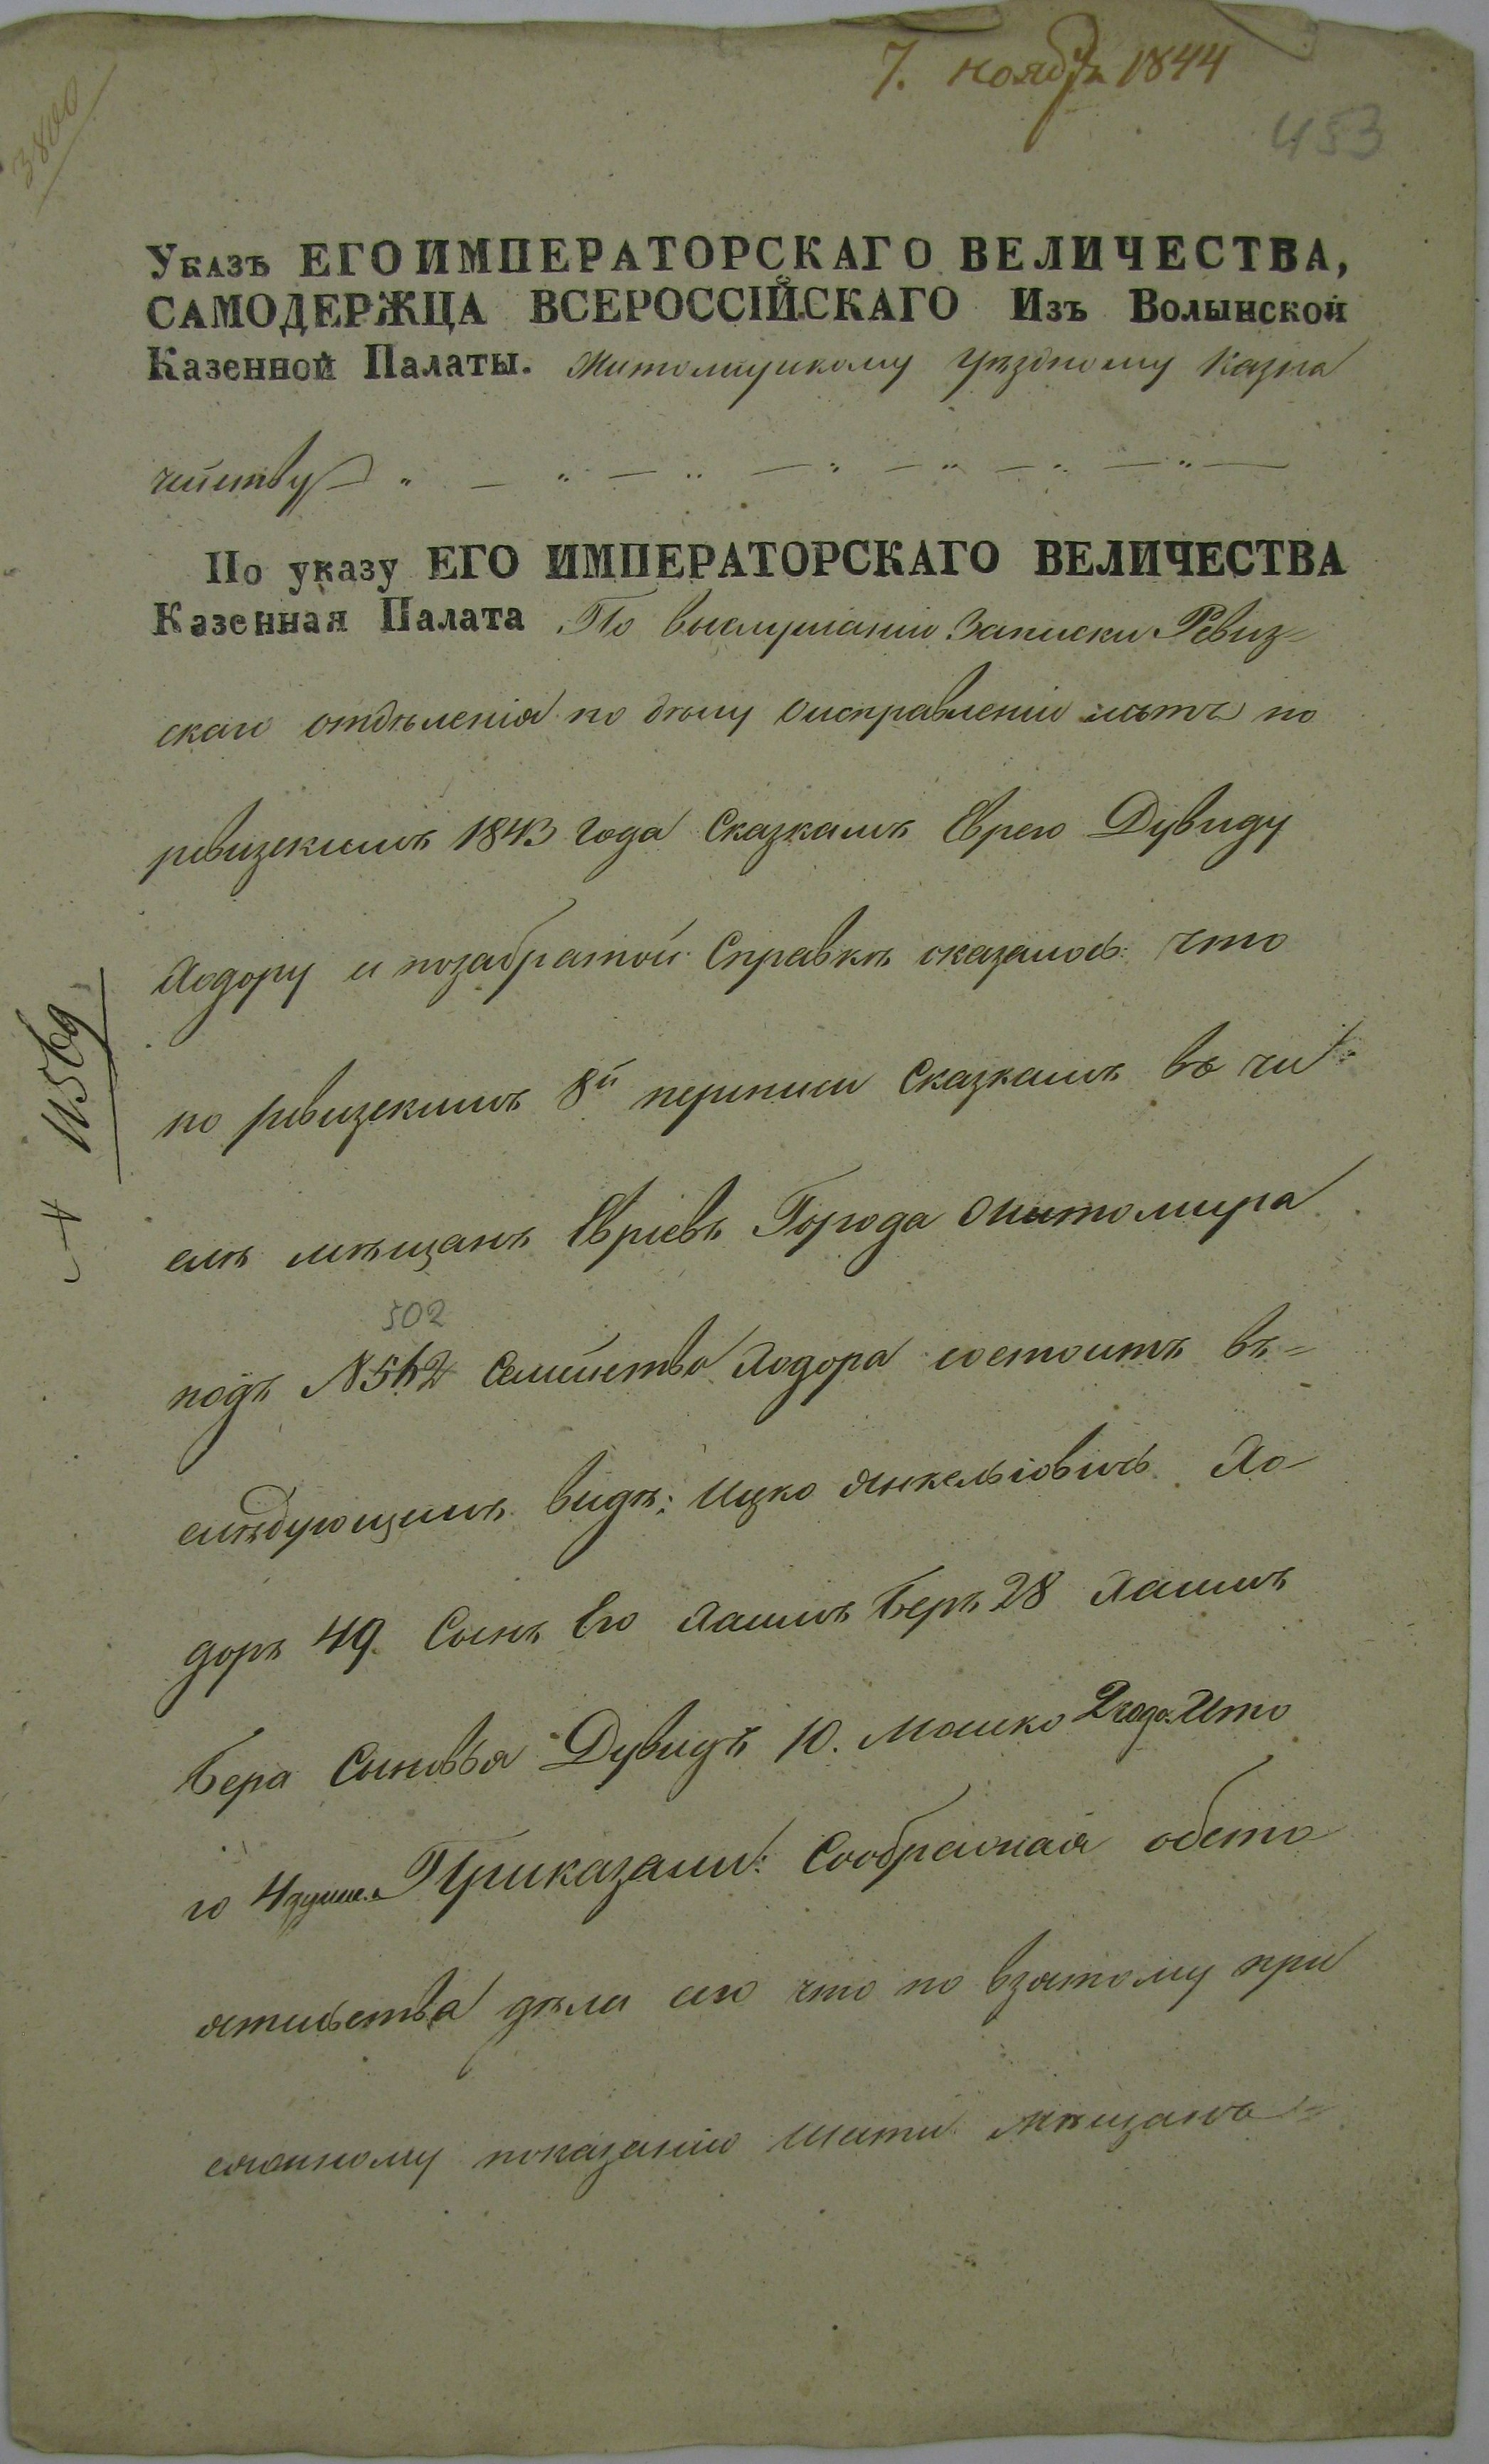 7. ноября 1844
453
3800
Указъ ЕГО ИМПЕРАТОРСКАГО ВЕЛИЧЕСТВА,
САМОДЕРЖЦА ВСЕРОССІЙСКАГО Изъ Волынской
Казенной Палаты. Житомирскому Уѣздному Казна
чейству
По указу ЕГО ИМПЕРАТОРСКАГО ВЕЛИЧЕСТВА
Казенная Палата По выслушаніи Записки Ревиз=
скаго отдѣленія по дѣлу оисправленіи лѣтъ по
ревизскимъ 1843 года Сказкамъ Еврею Дувиду
Лодору и позабратой Справкѣ оказалось: что
по ревизскимъ 8й переписи Сказкамъ въ чи=
слѣ мѣщанъ Евреевъ Города Житомира
502
подъ № 542 Семейство Лодора состоитъ въ=
слѣдующемъ видѣ: Ицко Янкельовичъ Ло-
доръ 49. Сынъ Его Хаимъ Беръ 28 Хаимъ
Бера Сыновья Дувидъ 10. Мошко 2 года. Ито
го 4 души. Приказали: Соображая обсто
ятельства дѣла сего что по взятому при
сяжному показанію шести мѣщанъ=
11569